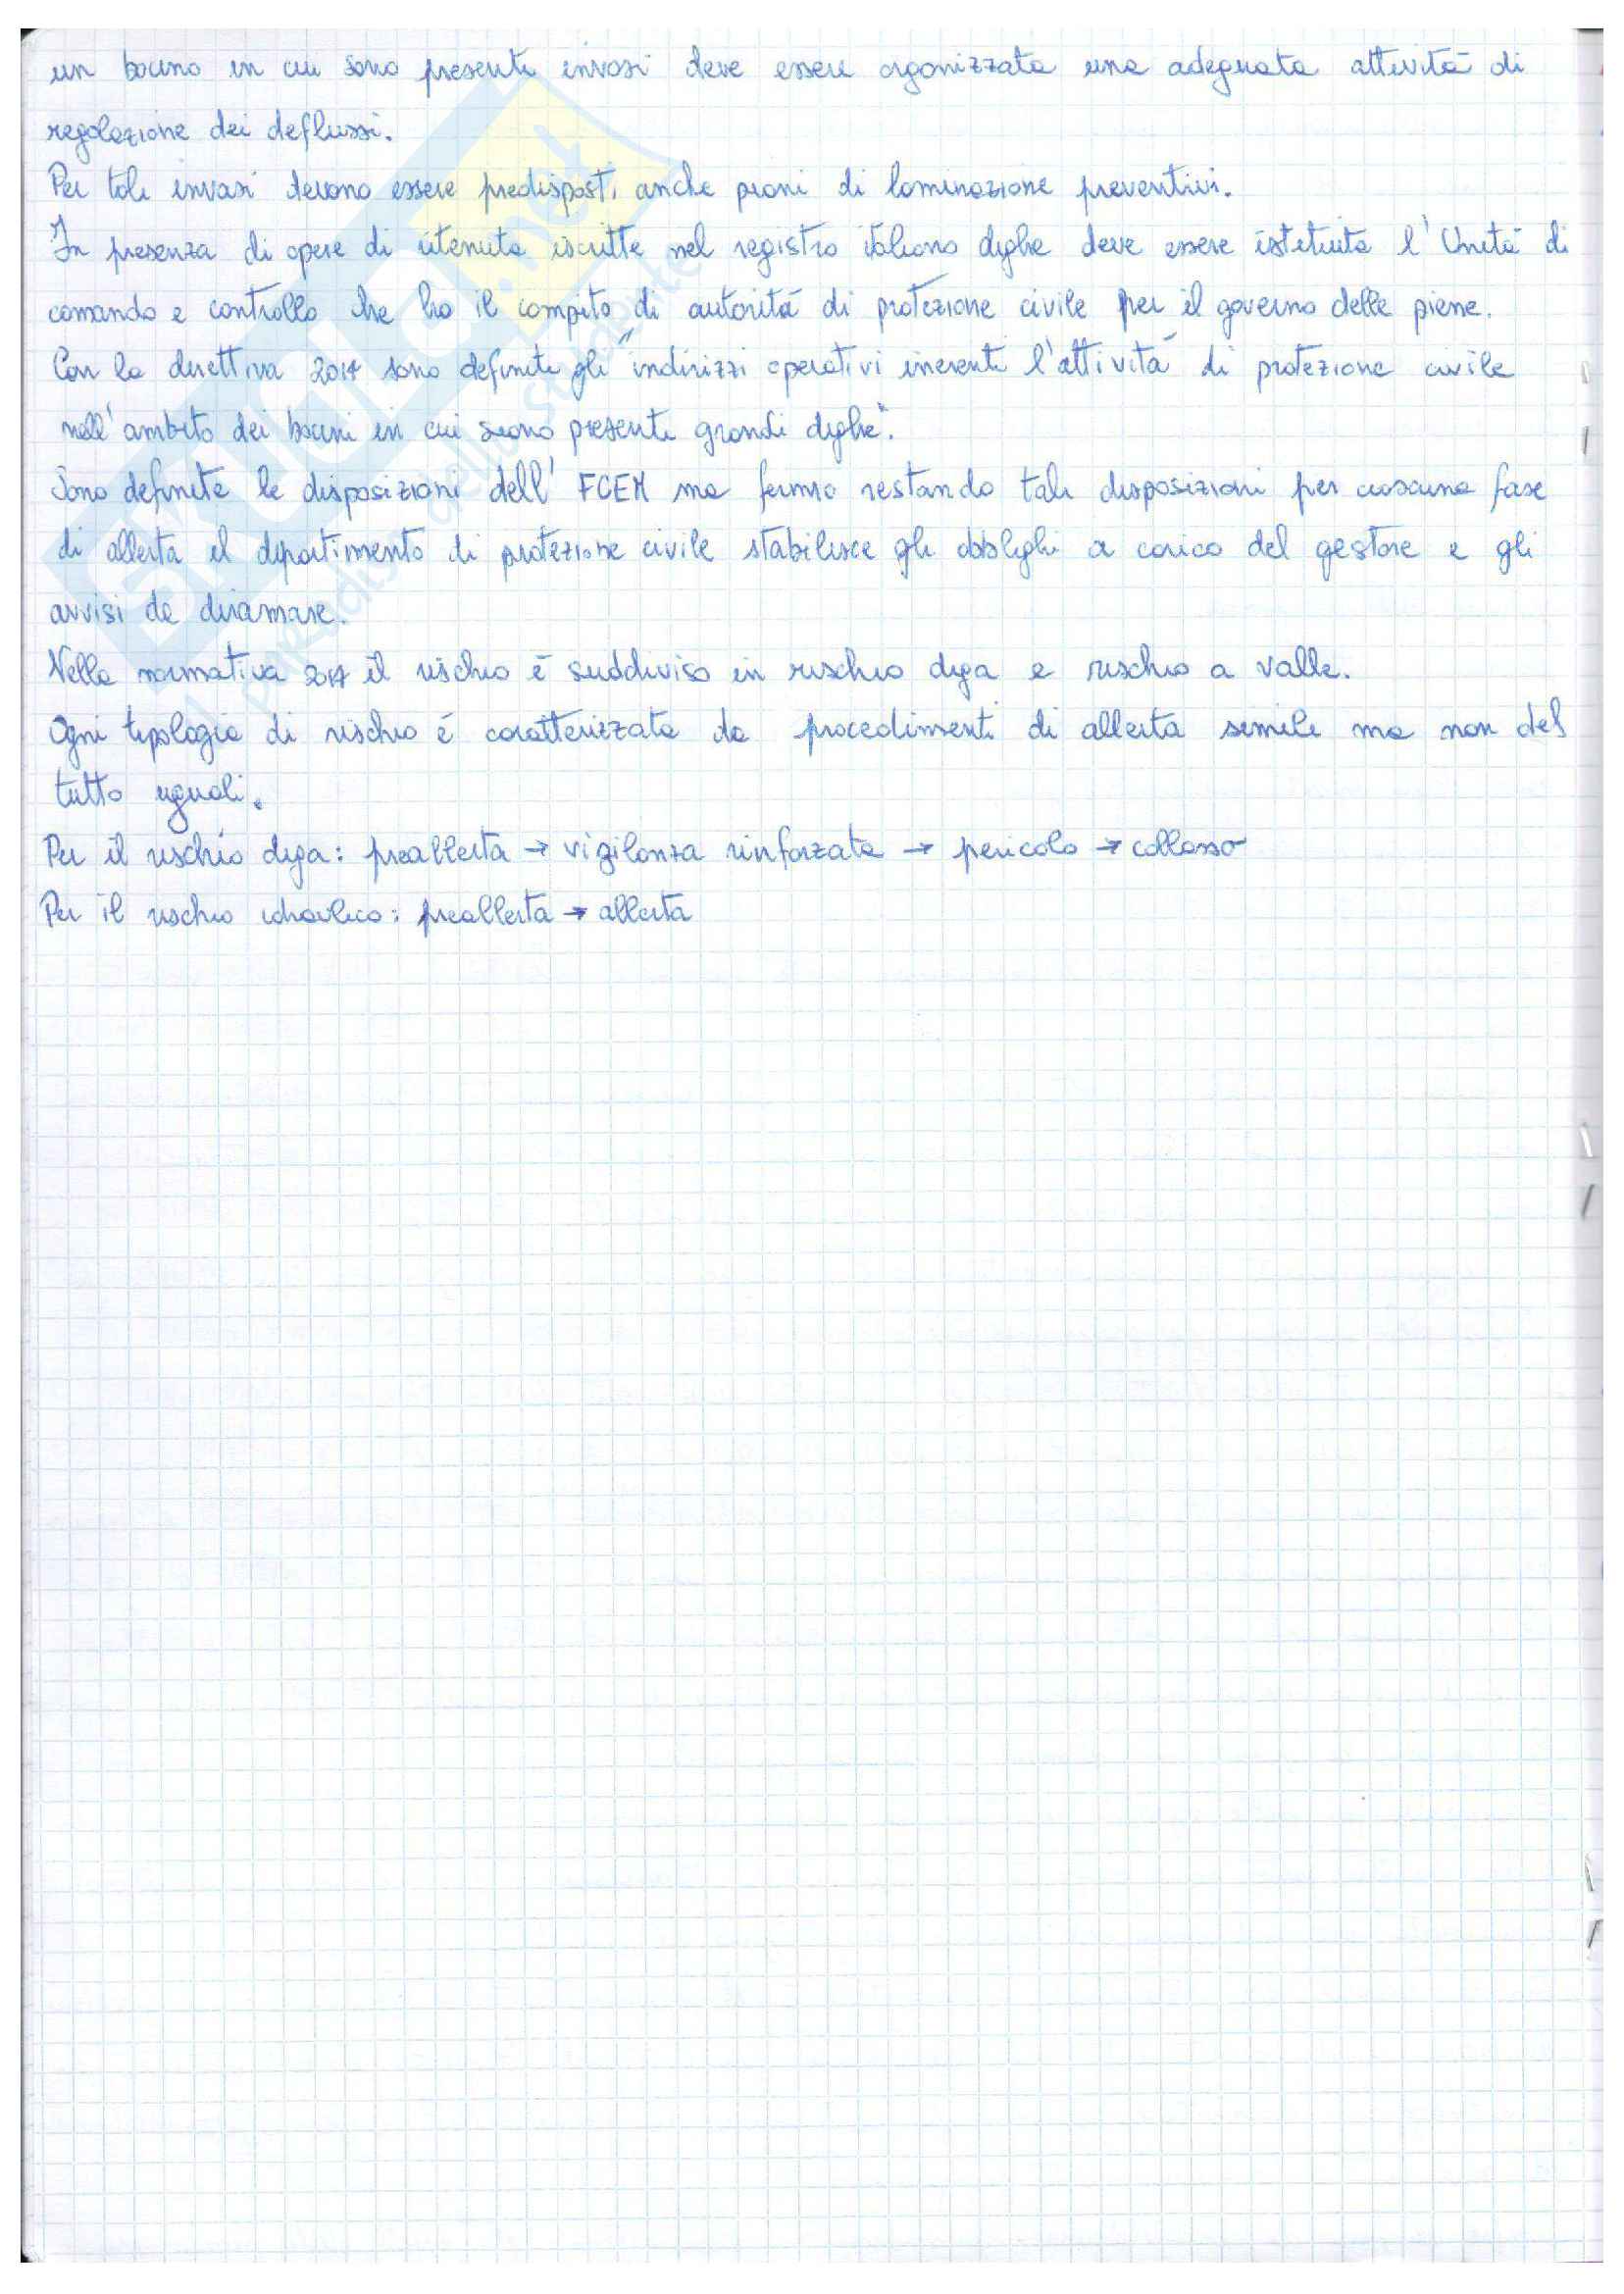 un bacino in cui sono presenti invasi deve essere organizzata una adeguata attività di
regolazione dei deflussi.
Per tali invasi devono essere predisposti anche piani di laminazione preventivi.
In presenza di opere di ritenuta iscritte nel registro italiano dighe deve essere istituita l'Unità di
comando e controllo che ha il compito di autorità di protezione civile per il governo delle piene.
Con la direttiva 2014 sono definiti gli "indirizzi operativi inerenti l'attività di protezione civile
nell'ambito dei bacini in cui siano presenti grandi dighe".
Sono definite le disposizioni dell' FCEM ma fermo restando tali disposizioni per ciascuna fase
di allerta il dipartimento di protezione civile stabilisce gli obblighi a carico del gestore e gli
avvisi da diramare.
Nella normativa 2014 il rischio è suddiviso in rischio diga e rischio a valle.
Ogni tipologia di rischio é caratterizzata da procedimenti di allerta simili ma non del
tutto uguali.
Per il rischio diga: preallerta → vigilanza rinforzata → pericolo → collasso
Per il rischio idraulico: preallerta → allerta